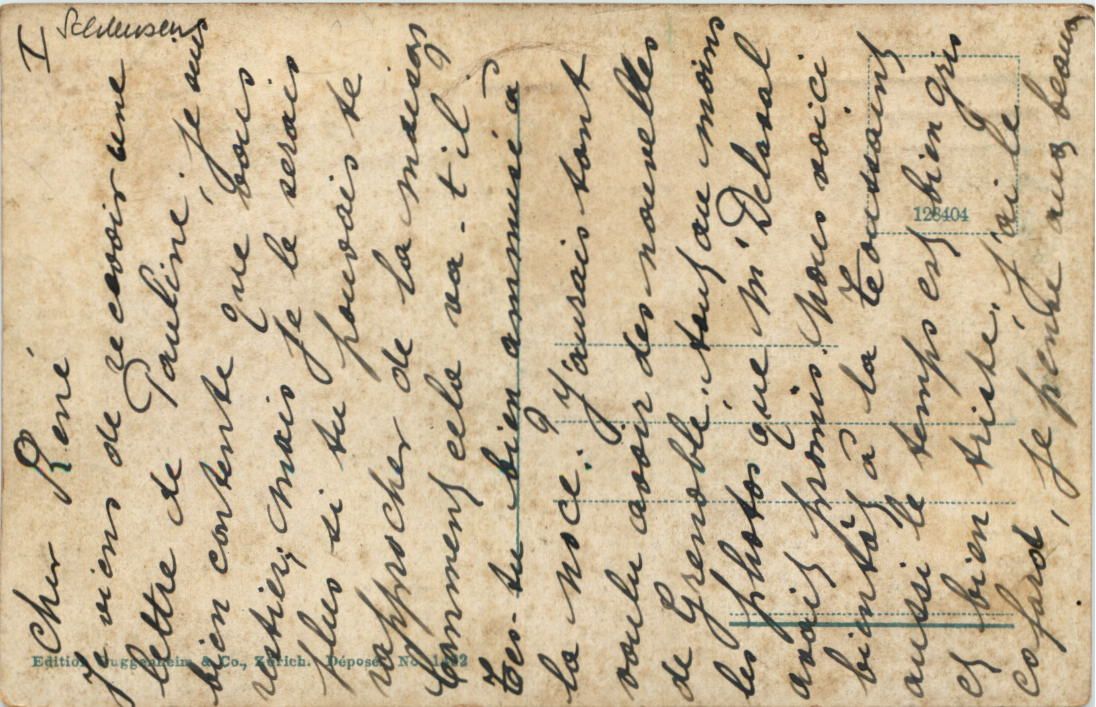 I
Cher René
Je viens de recevoir une
lettre de Pauline, je suis
bien contente que vous
restiez, mais je le serais
plus si tu pouvais te
rapprocher de la maison
Comment cela va-t-il ?
Tes-tu bien ammusé à
la noce ? J'aurais tant
voulu avoir des nouvelles
de Grenoble, tout au moins
les photos que M' Delaval
avait promis. Nous voici
bientôt à la Toussaint
aussi le temps est bien gris
et bien triste, j'ai le
cafard, je pense aux beaux
128404
Edition Guggenheim & Co., Zürich. Déposé. No.